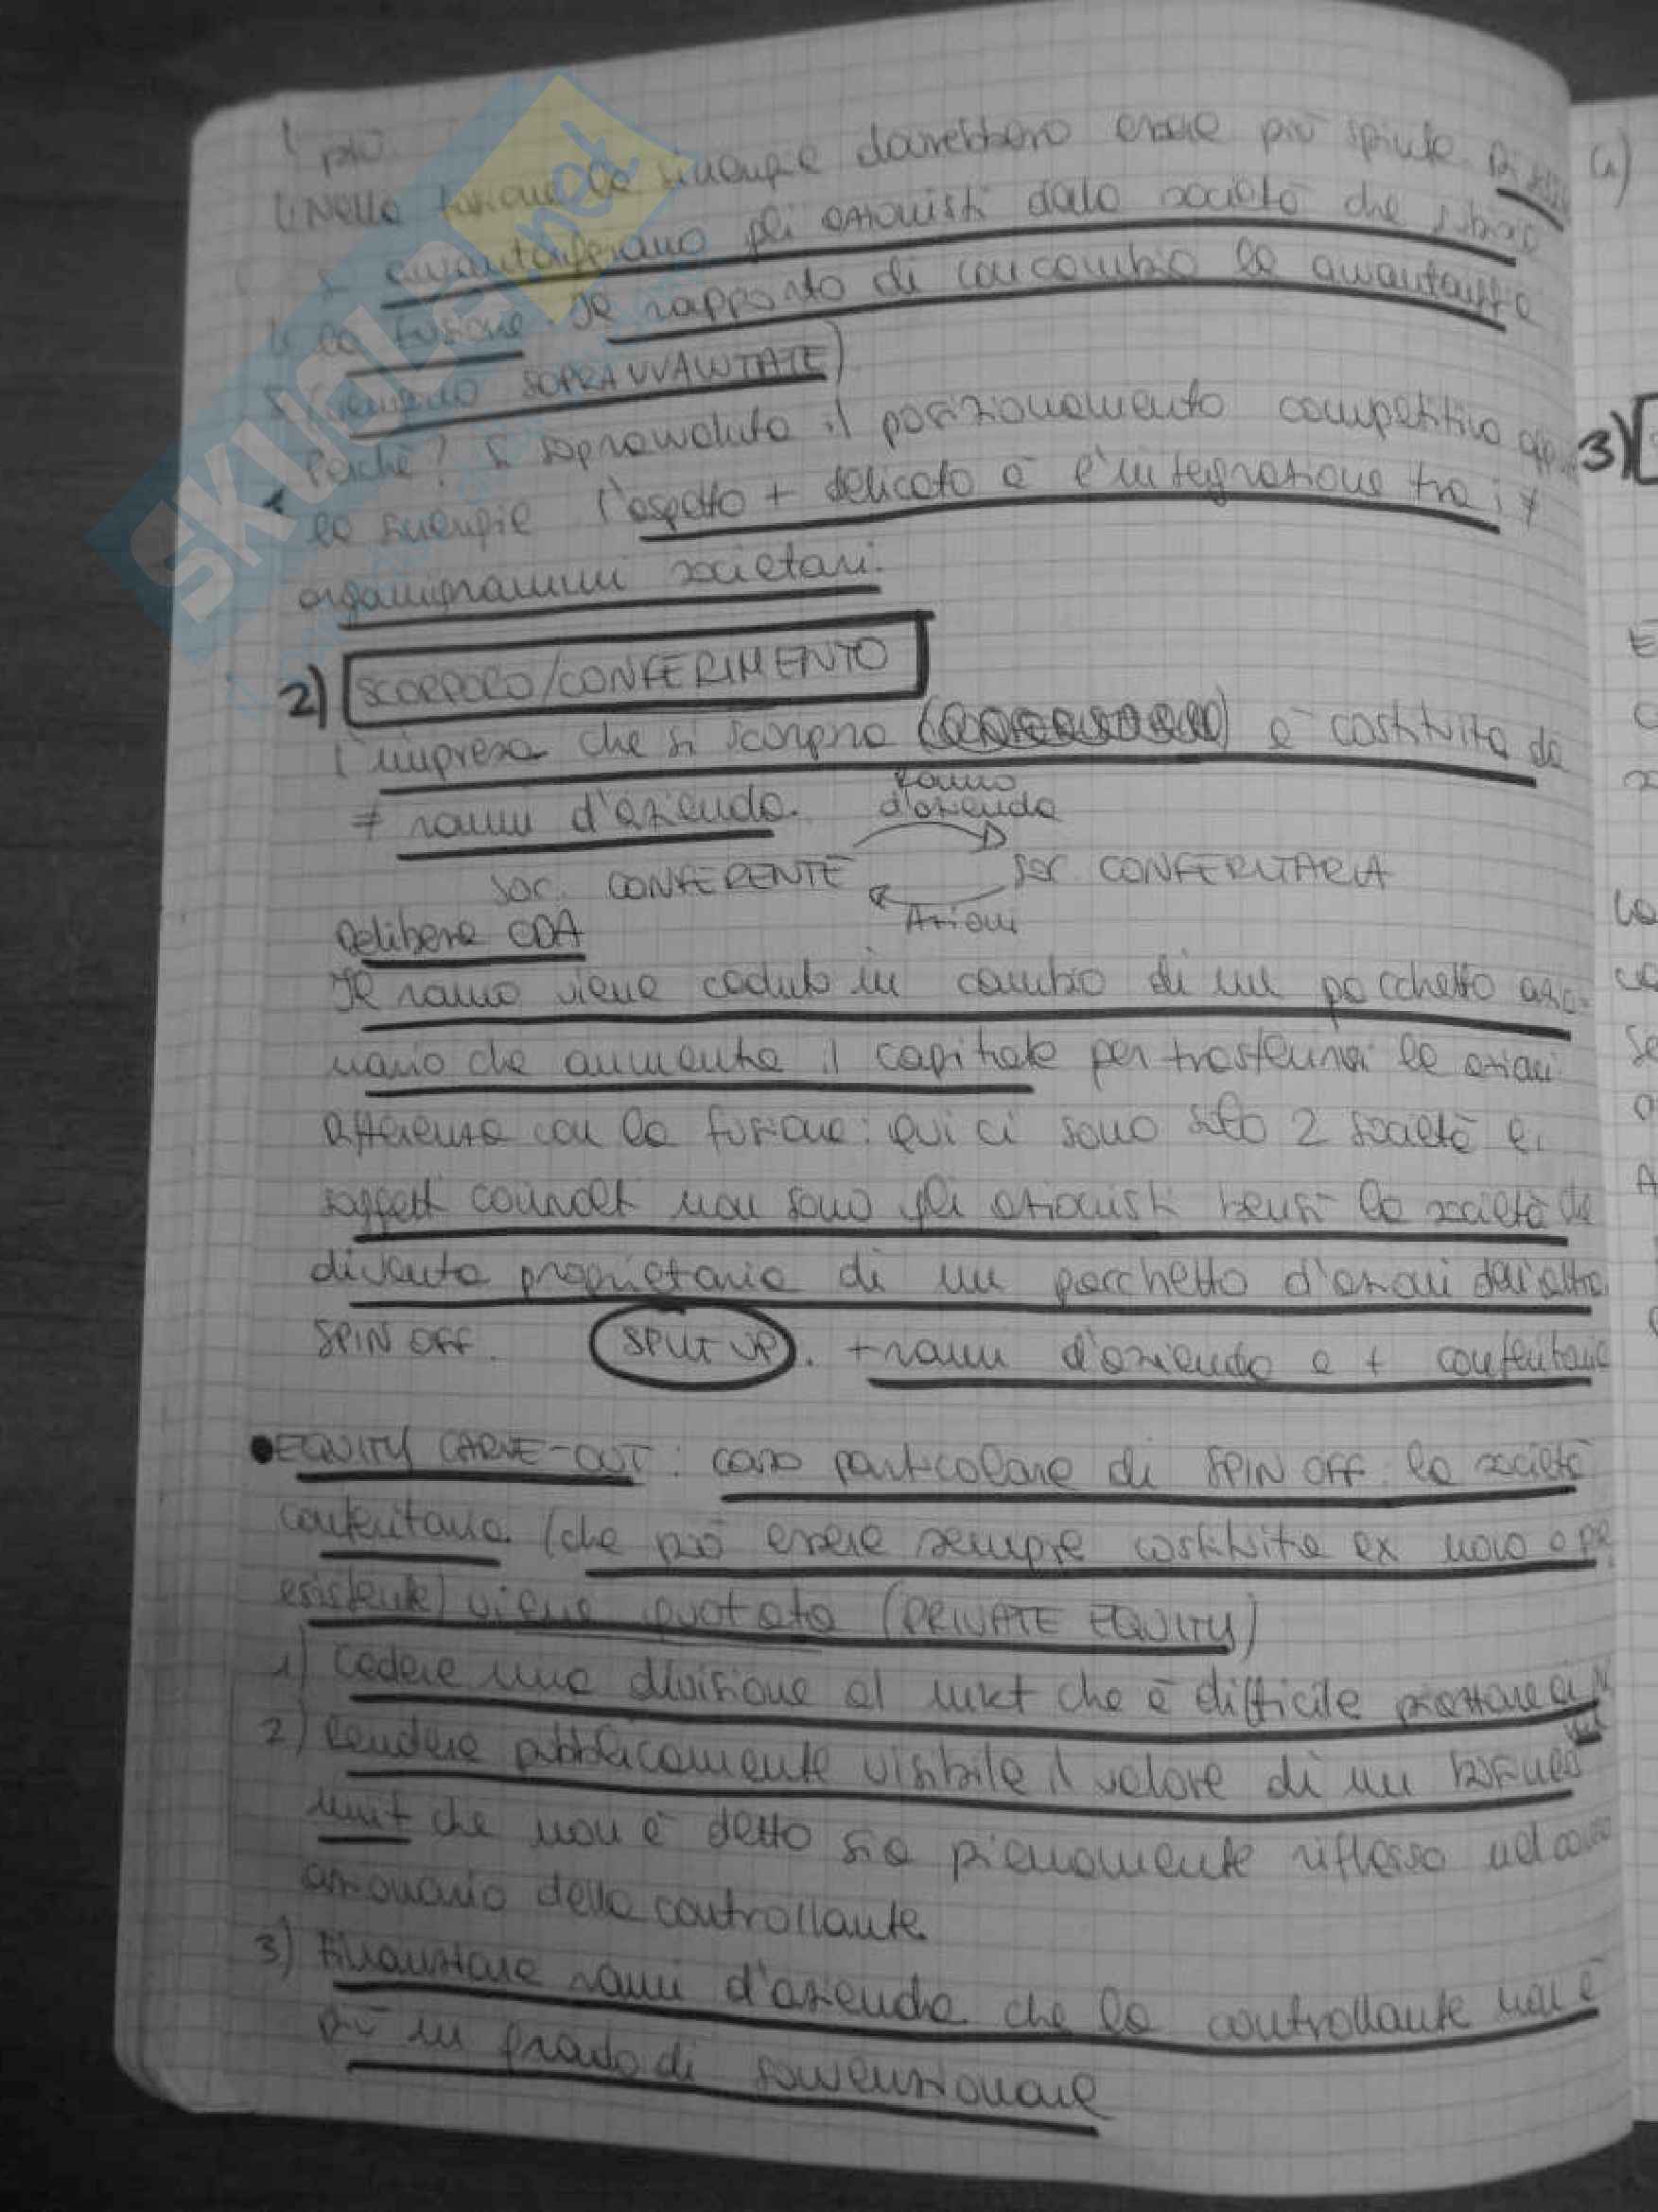 più
Nella fusione le sinergie dovrebbero essere più spinte. Di solito
si avvantaggiano gli azionisti della società che subisce
la fusione. Il rapporto di concambio le avvantaggia
(vengono SOPRAVVALUTATE)
Perché? Si sopravvaluta il posizionamento competitivo oppure
le sinergie l'aspetto + delicato è l'integrazione tra i ≠
organigrammi societari.
2) SCORPORO/CONFERIMENTO
l'impresa che si scorpora è costituita da
≠ rami d'azienda.
ramo
d'azienda
SOC. CONFERENTE SOC CONFERITARIA
Azioni
Delibera CDA
Il ramo viene ceduto in cambio di un pacchetto azio-
nario che aumenta il capitale per trasferirci le azioni
differenza con la fusione: qui ci sono solo 2 società e i
soggetti coinvolti non sono gli azionisti bensì la società che
diventa proprietaria di un pacchetto d'azioni dell'altra.
SPIN OFF. SPLIT UP. + rami d'azienda e + conferitarie
• EQUITY CARVE-OUT: caso particolare di SPIN OFF: la società
conferitaria (che può essere sempre costituita ex novo o pre
esistente) viene quotata (PRIVATE EQUITY)
1) Cedere una divisione al mkt che è difficile piazzare
2) Rendere pubblicamente visibile il valore di un business
unit che non è detto sia pienamente riflesso nel corso
azionario della controllante.
3) Finanziare rami d'azienda che la controllante non è
più in grado di sovvenzionare
a)
3)